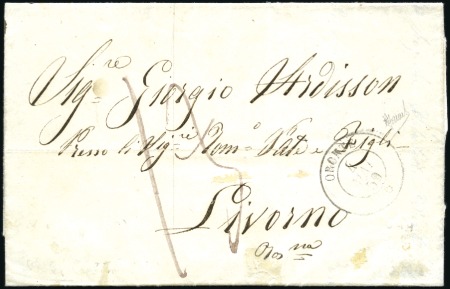 Sig.re Giorgio Ardisson
Presso li Sig.ri Dom.o Pate e Figli
Livorno